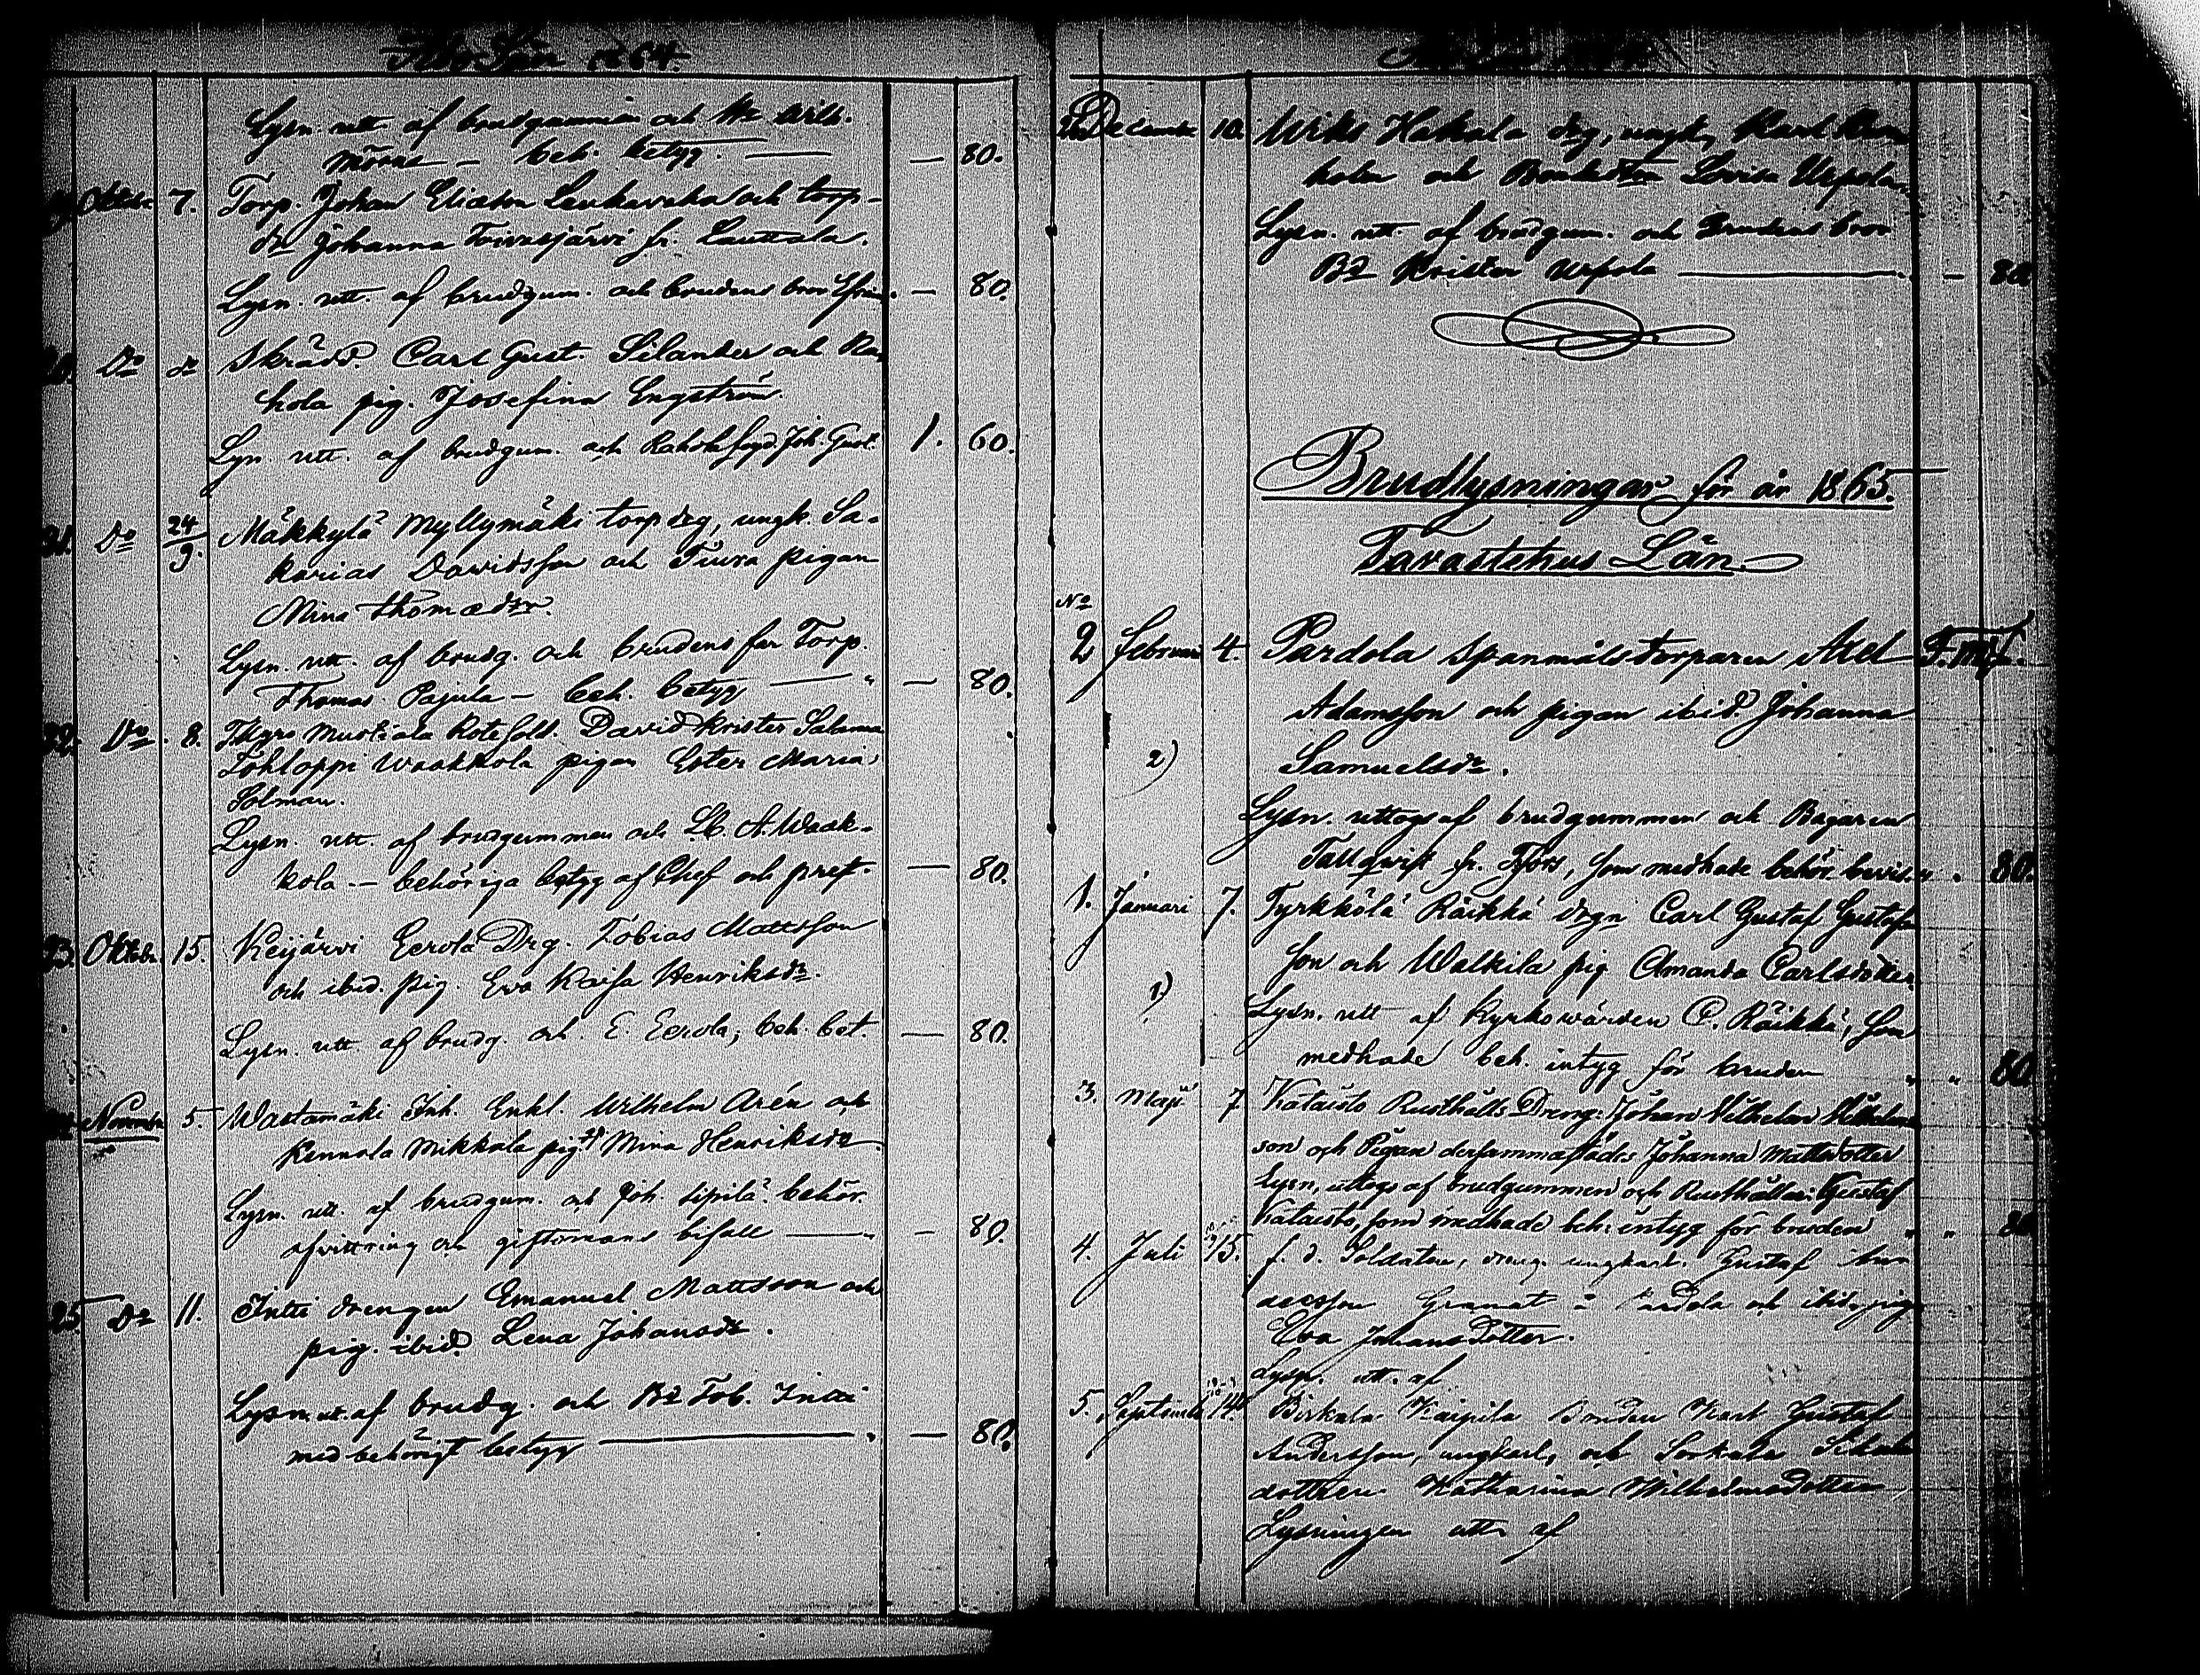 Åbo Län 1864.
Lysn. utt. af brudgummen och Wilh.
– beh. betyg. — — 80.
Oktobr. 7. Torp. Johan Eliasson Leukaraha och torp-
dr Johanna Toivasjärvi fr. Lauttala.
Lysn. utt. af brudgum. och brudens bror — 80.
Do do Skrädd. Carl Gust. Silander och Ra-
hola pig. Josefina Engström.
Lyn. utt. af brudgum. och Rahola fogd. Joh. Gust. 1. 60.
21. Do 24/9. Mäkkylä Myllymäki torp drg, ungk. Sa-
karias Davidsson och Tiura pigan
Mina Thomædtr.
Lysn. utt. af brudg. och brudens far Torp.
Thomas Pajula – beh. betyg — " — 80.
22. Do 8. Mustiala Rote sold. David Krister Salama
Tohloppi Waakkola pigan Ester Maria
Solman.
Lysn. utt. af brudgummen och A. Waak-
kola – behöriga betyg af Chef och prest. — 80.
23. Oktobr. 15. Keijärvi Eerola Drg. Tobias Mattsson
och ibid. pig. Eva Kaisa Henriksdr.
Lysn. utt. af brudg. och E. Eerola, beh. bet. — 80.
November 5. Wastamäki Inh. Enkl. Wilhelm Arén och
Kennola Mikkola pig. Mina Henriksdr
Lysn. utt. af brudgum. och Joh. Sipilä behör.
afvittring och giftomans bifall — " — 80.
25. Do 11. Intti drengen Emanuel Mattsson och
pig. ibid. Lena Johansdr.
Lysn. ut. af brudg. och Bd Tob. Intti
med behörigt betyg — " — 80.
December 10. Wiks Hakala drg, ungk, Karl
och Bondedtrn Lovisa Uspola.
Lysn. utt. af brudgum. och Brudens bror
Bd Krister Uspola — — 80.
Brudlysningar för år 1865.
Tavastehus Län.
No
2 Februari 4. Pardola Spanmåls torparen Axel F. mk.
Adamsson och pigan ibid. Johanna
2) Samuelsdr.
Lysn. uttogs af brudgummen och Bagaren
Tallqvist fr. Tfors, som medhade behör. bevis " . 80.
1. Januari 7. Tyrkkölä Räikkä drgn Carl Gustaf Gustafs-
son och Walkila pig Amanda Carlsdotter
1) Lysn. utt af Kyrkowärden C. Räikkä, som
medhade beh. intyg för bruden " " 80
3. Maji 7 Kataisto Rusthålls Dreng: Johan Vilhelm
son och Pigan dersammastädes Johanna Mattsdotter
Lysn, uttogs af brudgummen och Rusthållar: Gustaf
Kataisto, som medhade beh: intyg för bruden " " 80
4. Juli 15. f. d. Soldaten, dreng. ungkarl. Gustaf
Granat i Pardola och ibid. pig.
Eva Johansdotter.
Lysn. utt. af
5. September 14. Birkala Kaipila Bonden Karl Gustaf
Andersson, ungkarl, och Sorkala
dottren Katharina Wilhelmsdotter
Lysningen utt. af